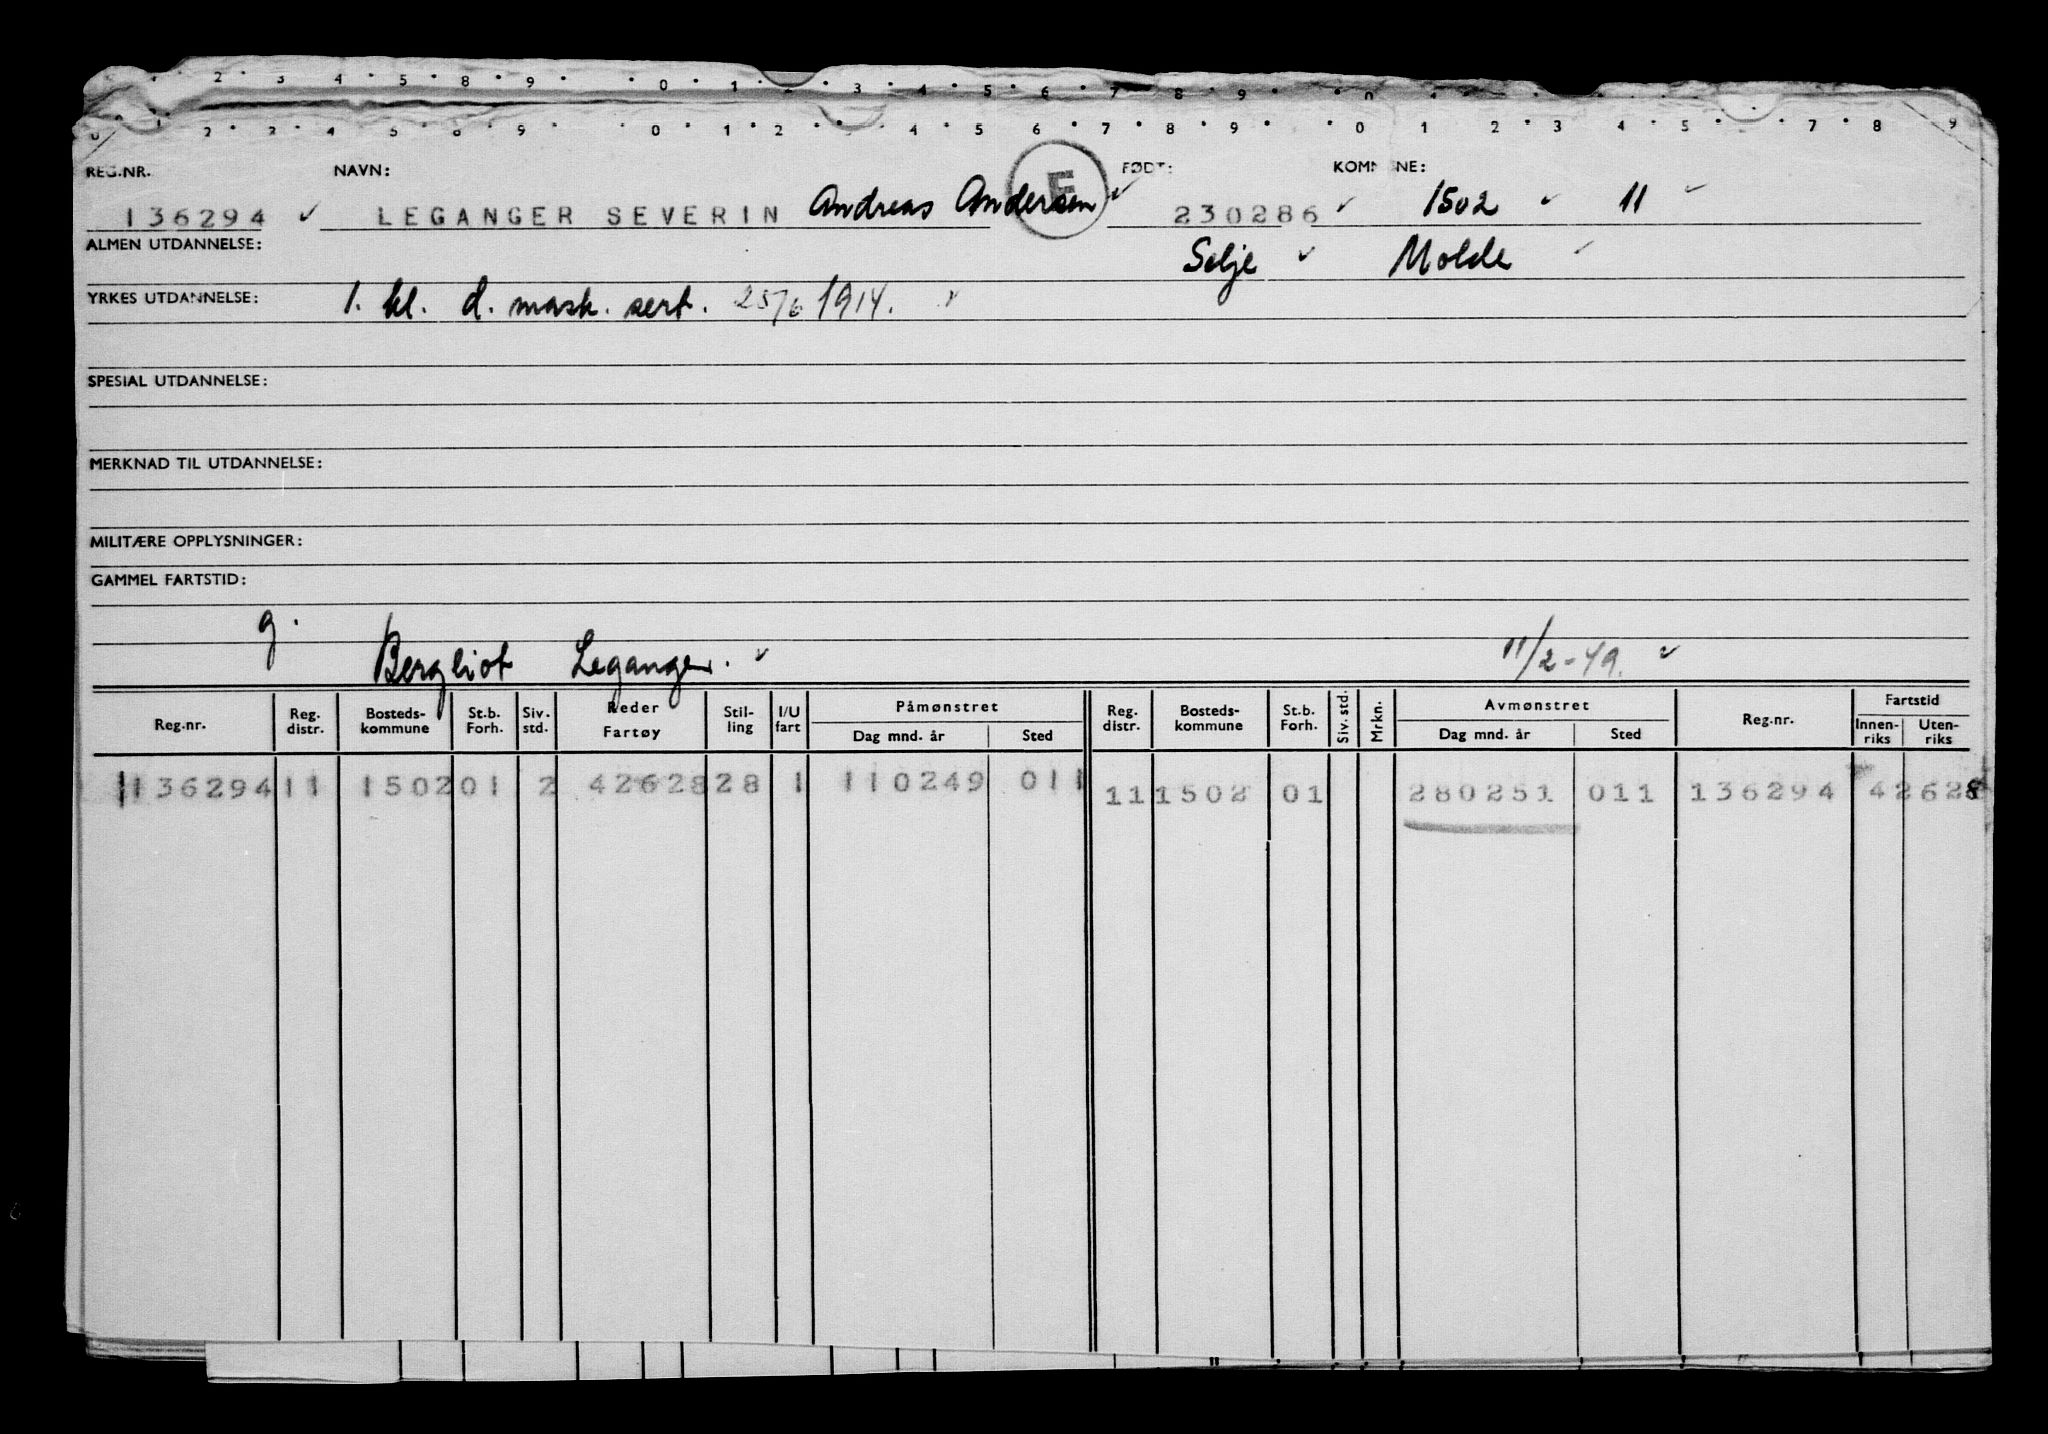 2 3 4 5 8 9 0 1 2 3 4 5 6 7 8 9 0 1 4 5
0 2 3 4 5 8 9 0 1 2 4 5 6 7 8 9 0 1 2 3 4 5 7 8 9
REG.NR. NAVN: E FØDT: KOMMUNE:
136294 LEGANGER SEVERIN Andreas Andersen 230286 1502 11
ALMEN UTDANNELSE: Selje Molde
YRKES UTDANNELSE: 1. kl. d. mask. sert. 25/6 1914.
SPESIAL UTDANNELSE:
MERKNAD TIL UTDANNELSE:
MILITÆRE OPPLYSNINGER:
GAMMEL FARTSTID:
g.
Bergliot Leganger. 11/2-49.
Reg.nr. Reg. distr. Bosteds-kommune St.b. Forh. Siv. std. Reder Fartøy Stil-ling I/U fart Påmønstret Dag mnd. år Sted Reg. distr. Bosteds-kommune St.b. Forh. Siv. std. Mrkn. Avmønstret Dag mnd. år Sted Reg.nr. Fartstid Innen-riks Uten-riks
136294 11 1502 01 2 42628 28 1 110249 011 11 1502 01 280251 011 136294 42628